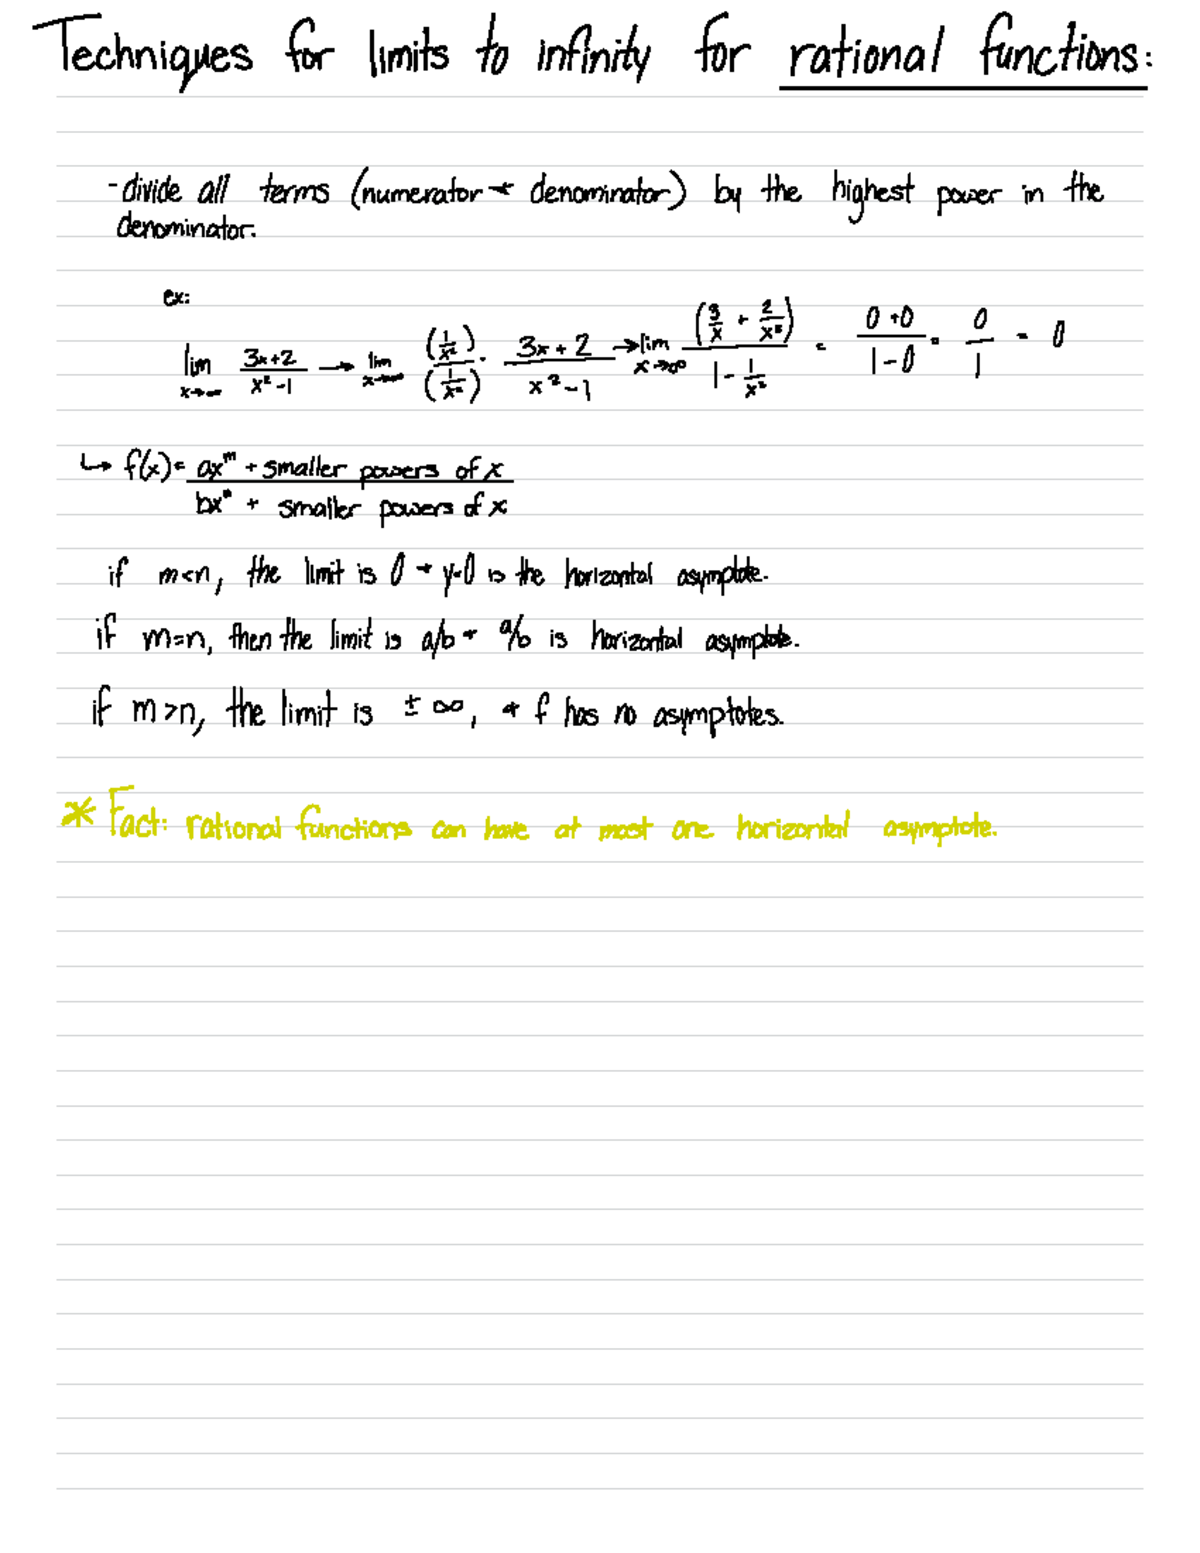 Techniques for limits to infinity for rational functions:
-divide all terms (numerator + denominator) by the highest power in the
denominator.
ex:
lim x→∞ (3x+2)/(x²-1) → lim x→∞ (1/x²)/(1/x²) · (3x+2)/(x²-1) → lim x→∞ (3/x + 2/x²)/(1 - 1/x²) = (0+0)/(1-0) = 0/1 = 0
↳ f(x) = ax^m + smaller powers of x
bx^n + smaller powers of x
if m<n, the limit is 0 + y=0 is the horizontal asymptote.
if m=n, then the limit is a/b + a/b is horizontal asymptote.
if m>n, the limit is ± ∞, + f has no asymptotes.
* Fact: rational functions can have at most one horizontal asymptote.